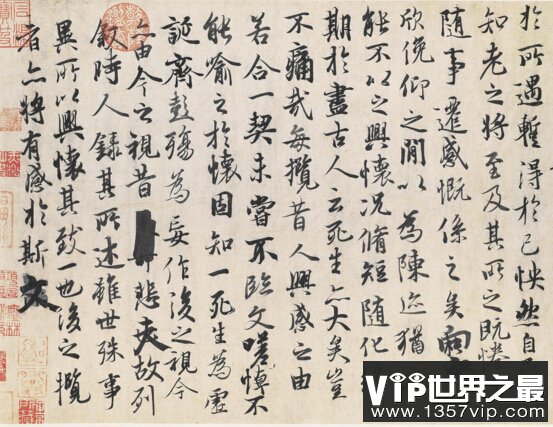 於所遇蹔得於己怏然自
知老之將至及其所之既惓
隨事遷感慨係之矣向
欣俛仰之閒以為陳迹猶
能不以之興懷況脩短隨化
期於盡古人云死生亦大矣豈
不痛哉每攬昔人興感之由
若合一契未嘗不臨文嗟悼不
能喻之於懷固知一死生為虛
誕齊彭殤為妄作後之視今
亦由今之視昔悲夫故列
敘時人錄其所述雖世殊事
異所以興懷其致一也後之攬
者亦將有感於斯文
VIP世界之最
www.1357vip.com